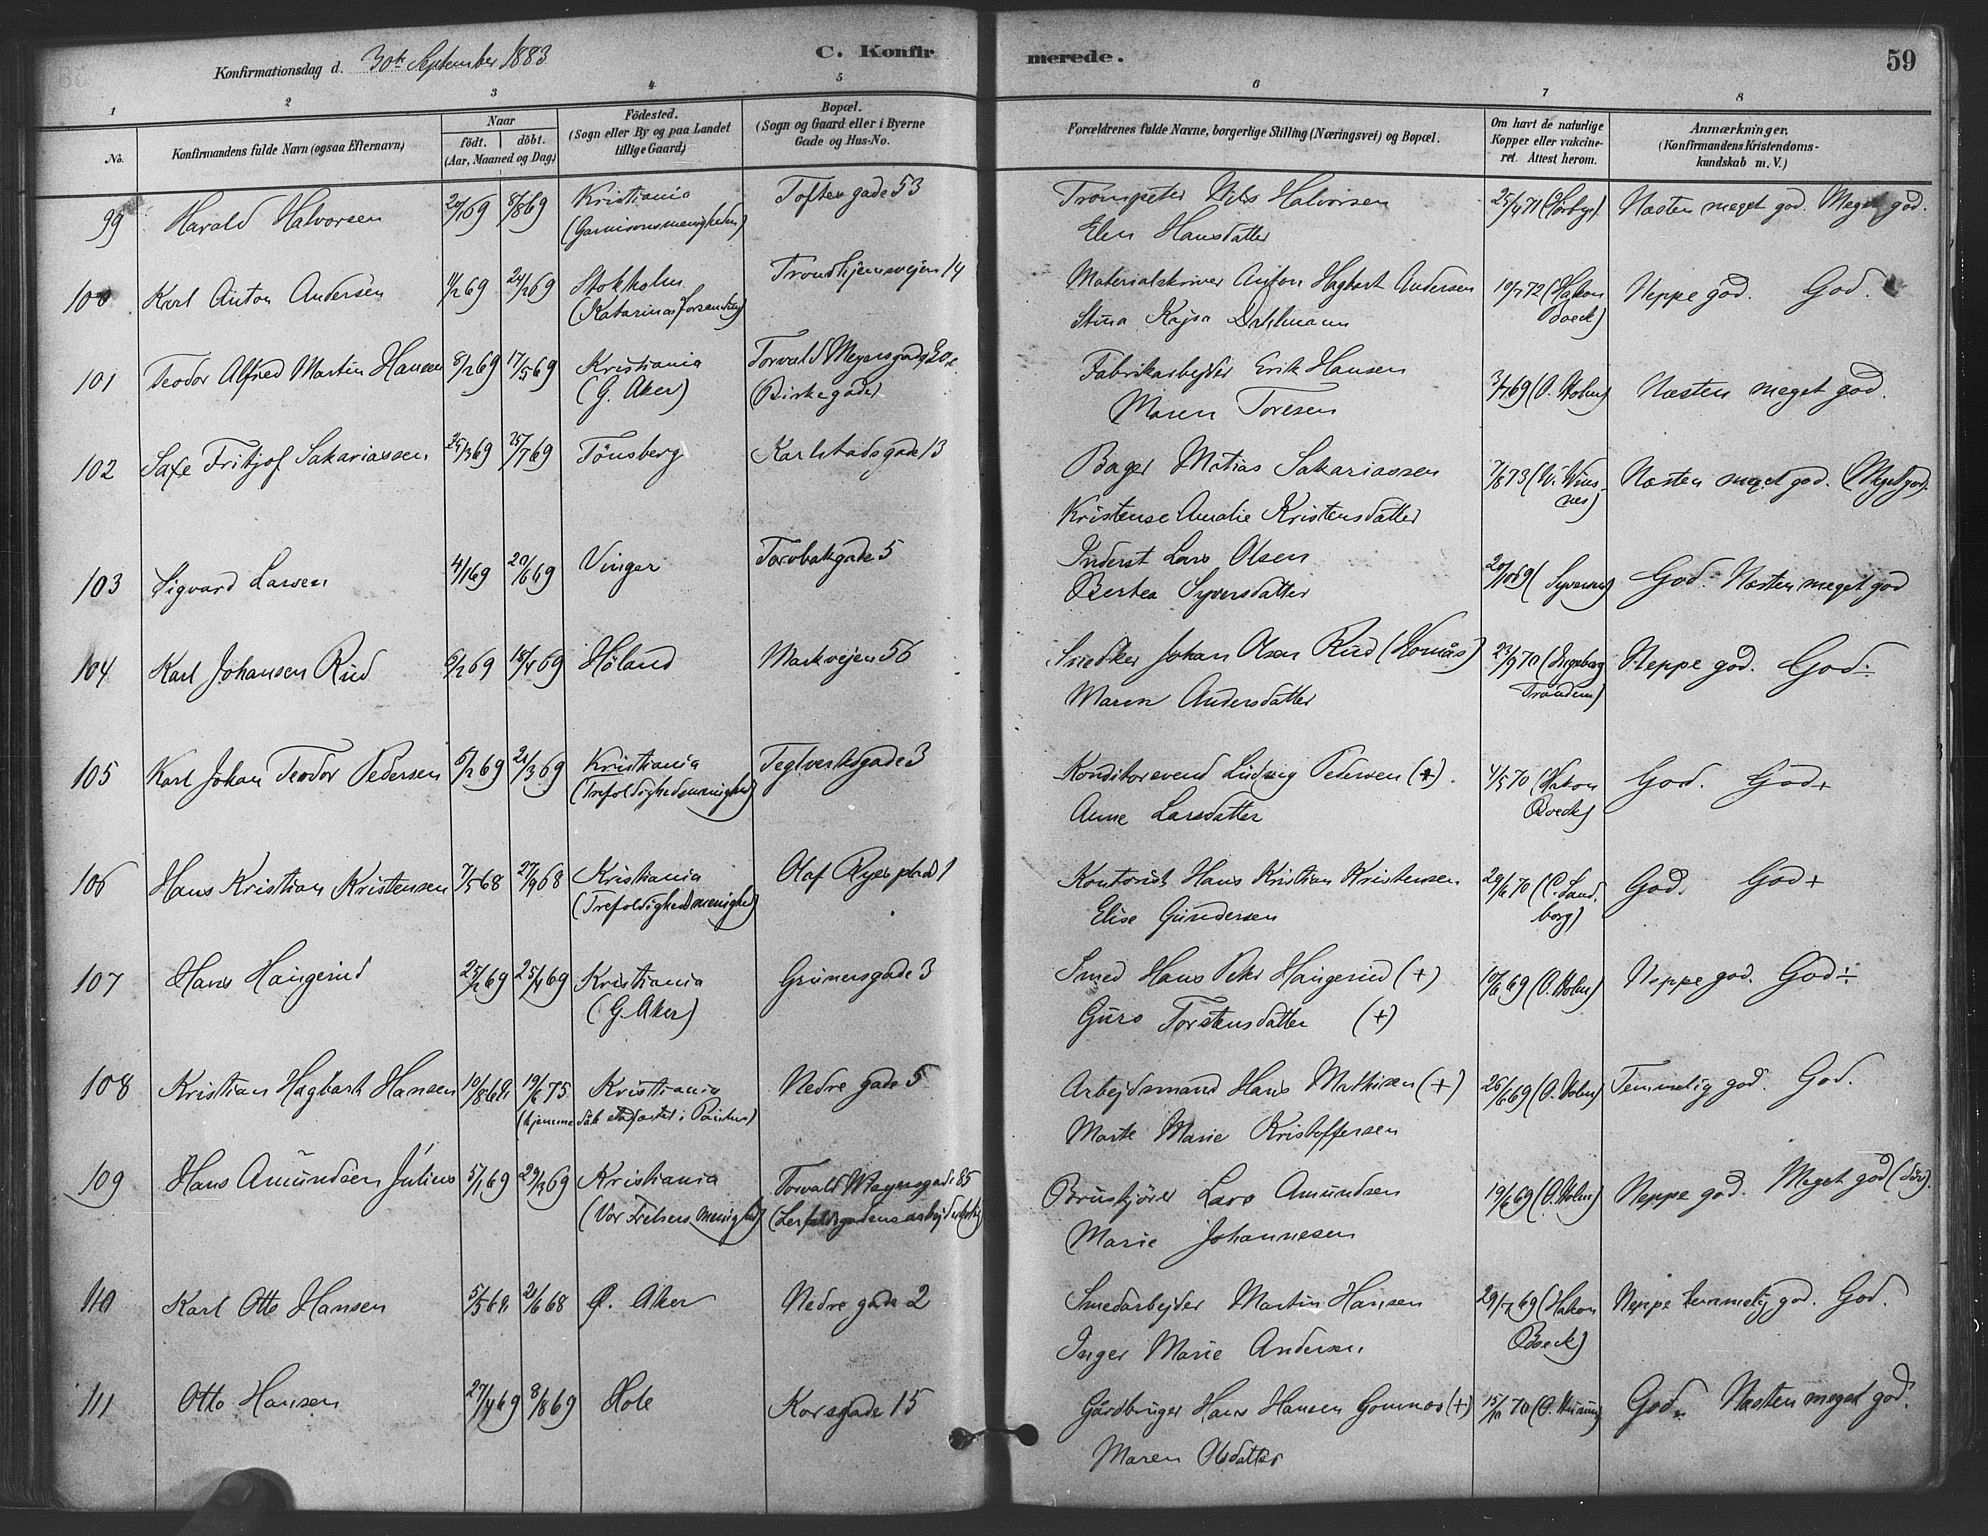 Konfirmationsdag d. 30te September 1883
C. Konfir merede. 59
1 2 3 4 5 6 7 8
No.
Konfirmandens fulde Navn (ogsaa Efternavn)
Naar
født. døbt.
(Aar, Maaned og Dag)
Fødested.
(Sogn eller By og paa Landet
tillige Gaard)
Bopæl.
(Sogn og Gaard eller i Byerne
Gade og Hus-No.
Forældrenes fulde Navne, borgerlige Stilling (Næringsvei) og Bopæl.
Om havt de naturlige
Kopper eller vakcine-
ret. Attest herom.
Anmærkninger.
(Konfirmandens Kristendoms-
kundskab m. V.)
99 Harald Halvorsen 20/1 69 8/8 69 Kristiania Toftes gade 53 Trompeter Nils Halvorsen 25/4 71 Næsten meget god. Meget god.
(Garnisonsmenigheden) Elen Hansdatter
100 Karl Anton Andersen 24/2 69 Stokholm Trondhjemsvejen 14 Materialskriver Anton Hagbart Andersen 19/7 72 (Hakon Neppe god. God.
(Katarina Forsamling) Stina Kajsa Dahlmann Boeck)
101 Teodor Alfred Martin Hansen 8/2 69 17/5 69 Kristiania Torvald Meyersgade 30 Fabrikarbejder Erik Hansen 3/7 69 (O. Holm) Næsten meget god.
(G. Aker) (Birkegade) Maren Toresen
102 Saxe Fritjof Sakariassen 25/3 69 25/7 69 Tönsberg Karlstadsgade 13 Bager Matias Sakariassen 7/8 73 (W. Wins- Næsten meget god. (Meget god.
Kristense Amalie Kristensdatter nes)
103 Sigvard Larsen 4/1 69 20/6 69 Vinger Torvbakgade 5 Inderst Lars Olsen 20/10 69 God. Næsten meget god
Bertea Syversdatter
104 Karl Johansen Rud 6/2 69 18/4 69 Høland Markvejen 56 Snedker Johan Olsen Rud 23/9 70 (Ingeborg Neppe god. God ÷
Maren Andersdatter
105 Karl Johan Teodor Pedersen 6/2 69 21/3 69 Kristiania Teglverksgade 3 Konditorsvend Ludvig Pedersen (+). 4/5 70 (Hakon God. God +
(Trefoldighedsmenighed) Anne Larsdatter Boeck)
106 Hans Kristian Kristensen 7/5 68 27/9 68 Kristiania Olaf Ryes plads 1 Kontorist Hans Kristian Kristensen 29/6 70 (C. Sand- God. God +
(Trefoldighedsmenighed) Elise Gundersen borg)
107 Hans Haugerud 25/2 69 25/4 69 Kristiania Grünersgade 3 Smed Hans Peter Haugerud (+) 10/6 69 (O. Holm) Neppe god. God ÷
(G. Aker) Guro Torstensdatter (+)
108 Kristian Hagbart Hansen 10/8 68 19/6 75 Kristiania Nedre gade 5 Arbejdsmand Hans Mathisen (+) 26/6 69 (O. Holm) Temmelig god. God.
(hjemmedåb stadfæstet i Paulus) Marte Marie Kristoffersen
109 Hans Amundsen Julius 5/1 69 29/3 69 Kristiania Torvald Meyersgade 85 Bruskjører Lars Amundsen 19/6 69 (O. Holm) Neppe god. Meget god (döv).
(Vor Frelsers menighed) (Lerfaldsgadens arbejderbolig) Marie Johannesen
110 Karl Otto Hansen 5/5 68 21/6 68 Ø. Aker Nedre gade 2 Smedarbejder Martin Hansen 29/7 69 (Hakon Neppe temmelig god. God.
Inger Marie Andersen Boeck)
111 Otto Hansen 27/4 69 8/8 69 Hole Korsgade 15 Gårdbruger Hans Hansen Gomnæs (+) 15/10 70 God. Næsten meget god.
Maren Olsdatter